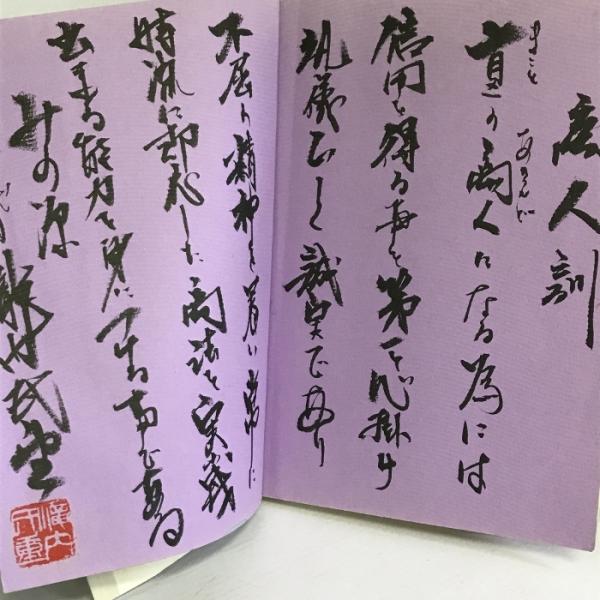 商人訓
真の商人になる為には
まこと
あきんど
信用を得る事を第一と心掛け
礼儀正しく誠実であり
不屈の精神を養い常に
時流に即応した商法を実践
出来る能力を身につける事である
みの源